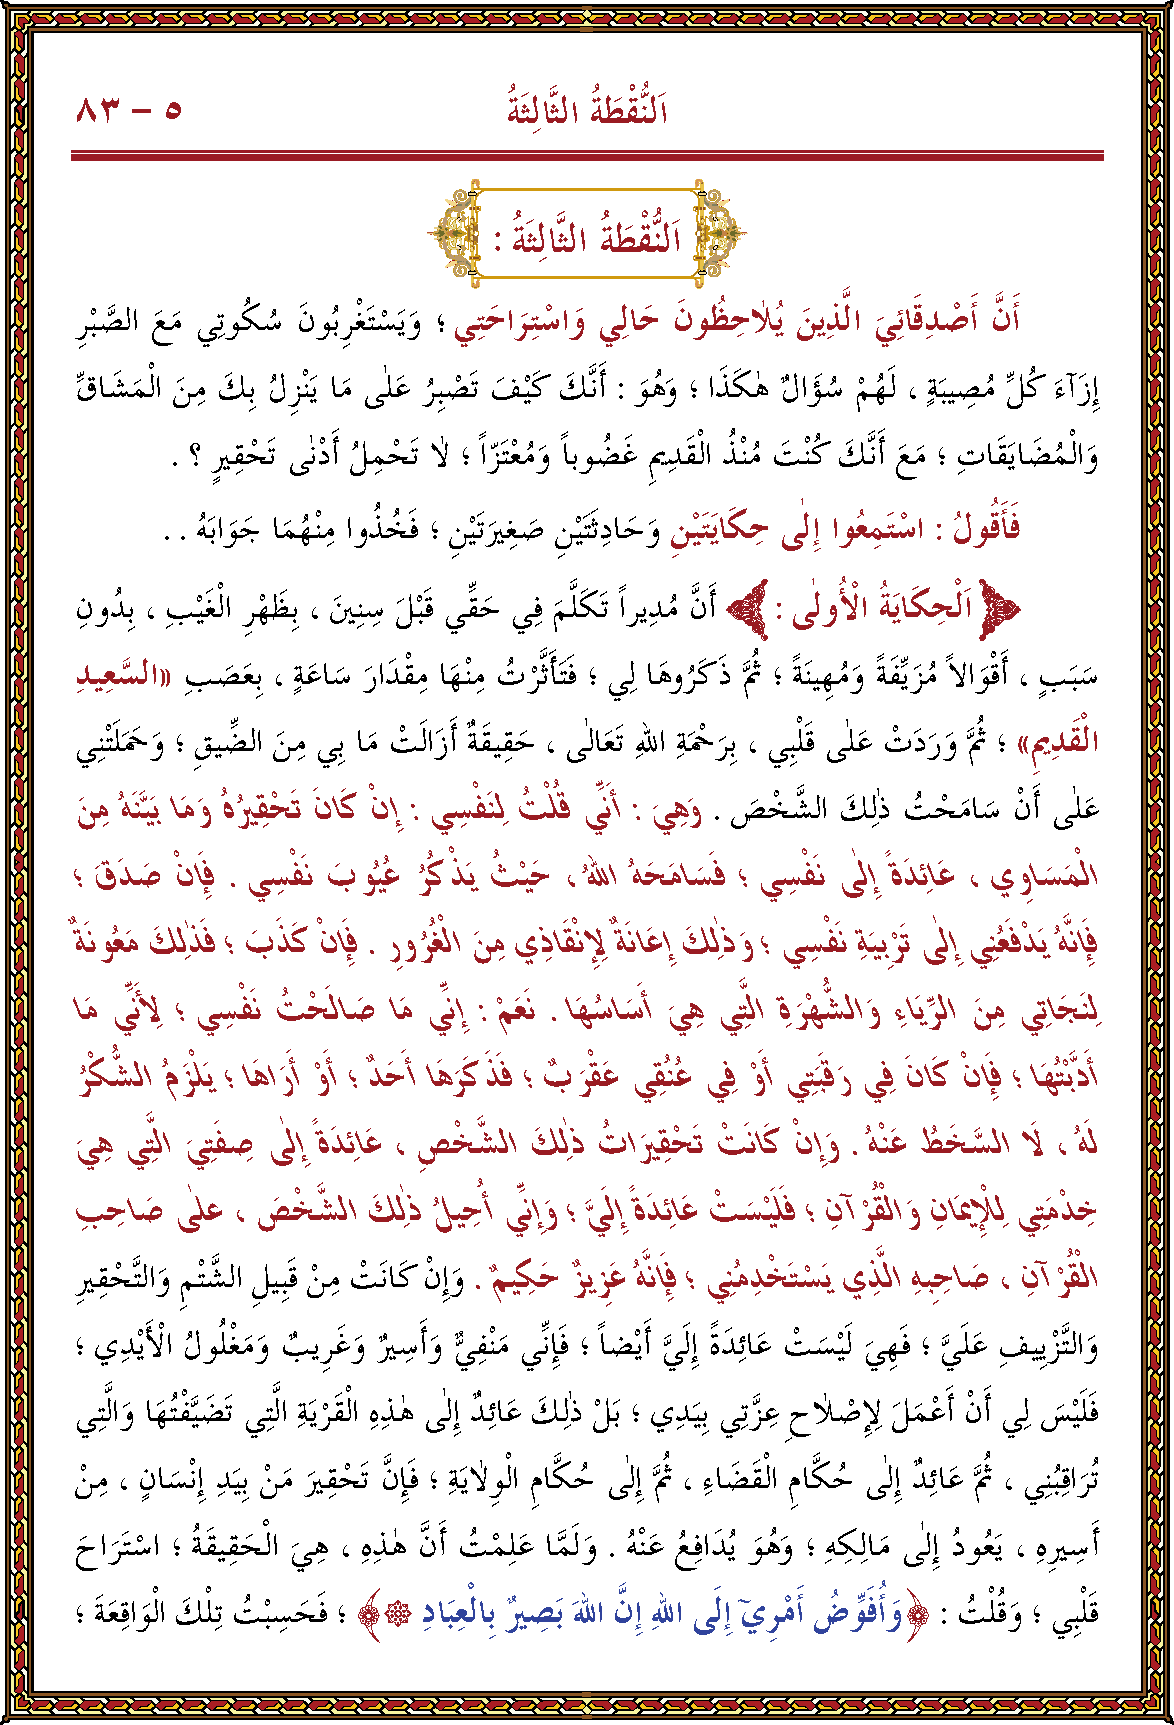 اَلنُّقْطَةُ الثَّالِثَةُ
٥ - ٨٣
اَلنُّقْطَةُ الثَّالِثَةُ :
أَنَّ أَصْدِقَائِيَ الَّذِينَ يُلاٰحِظُونَ حَالِي وَاسْتِرَاحَتِي ؛ وَيَسْتَغْرِبُونَ سُكُوتِي مَعَ الصَّبْرِ
إِزَآءَ كُلِّ مُصِيبَةٍ ، لَهُمْ سُؤَالٌ هٰكَذَا ؛ وَهُوَ : أَنَّكَ كَيْفَ تَصْبِرُ عَلٰى مَا يَنْزِلُ بِكَ مِنَ الْمَشَاقِّ
وَالْمُضَايَقَاتِ ؛ مَعَ أَنَّكَ كُنْتَ مُنْذُ الْقَدِيمِ غَضُوباً وَمُعْتَزّاً ؛ لاٰ تَحْمِلُ أَدْنٰى تَحْقِيرٍ ؟ .
فَأَقُولُ : اسْتَمِعُوا إِلٰى حِكَايَتَيْنِ وَحَادِثَتَيْنِ صَغِيرَتَيْنِ ؛ فَخُذُوا مِنْهُمَا جَوَابَهُ . .
اَلْحِكَايَةُ الْأُولٰى : أَنَّ مُدِيراً تَكَلَّمَ فِي حَقِّي قَبْلَ سِنِينَ ، بِظَهْرِ الْغَيْبِ ، بِدُونِ
سَبَبٍ ، أَقْوَالاً مُزَيِّفَةً وَمُهِينَةً ؛ ثُمَّ ذَكَرُوهَا لِي ؛ فَتَأَثَّرْتُ مِنْهَا مِقْدَارَ سَاعَةٍ ، بِعَصَبِ «السَّعِيدِ
الْقَدِيمِ» ؛ ثُمَّ وَرَدَتْ عَلٰى قَلْبِي ، بِرَحْمَةِ اللهِ تَعَالٰى ، حَقِيقَةٌ أَزَالَتْ مَا بِي مِنَ الضِّيقِ ؛ وَحَمَلَتْنِي
عَلٰى أَنْ سَامَحْتُ ذٰلِكَ الشَّخْصَ . وَهِيَ : أَنِّي قُلْتُ لِنَفْسِي : إِنْ كَانَ تَحْقِيرُهُ وَمَا بَيَّنَهُ مِنَ
الْمَسَاوِي ، عَائِدَةً إِلٰى نَفْسِي ؛ فَسَامَحَهُ اللهُ ، حَيْثُ يَذْكُرُ عُيُوبَ نَفْسِي . فَإِنْ صَدَقَ ؛
فَإِنَّهُ يَدْفَعُنِي إِلٰى تَرْبِيَةِ نَفْسِي ؛ وَذٰلِكَ إِعَانَةٌ لِإِنْقَاذِي مِنَ الْغُرُورِ . فَإِنْ كَذَبَ ؛ فَذٰلِكَ مَعُونَةٌ
لِنَجَاتِي مِنَ الرِّيَاءِ وَالشُّهْرَةِ الَّتِي هِيَ أَسَاسُهَا . نَعَمْ : إِنِّي مَا صَالَحْتُ نَفْسِي ؛ لِأَنِّي مَا
أَدَّبْتُهَا ؛ فَإِنْ كَانَ فِي رَقَبَتِي أَوْ فِي عُنُقِي عَقْرَبٌ ؛ فَذَكَرَهَا أَحَدٌ ؛ أَوْ أَرَاهَا ؛ يَلْزَمُ الشُّكْرُ
لَهُ ، لَا السَّخَطُ عَنْهُ . وَإِنْ كَانَتْ تَحْقِيرَاتُ ذٰلِكَ الشَّخْصِ ، عَائِدَةً إِلٰى صِفَتِيَ الَّتِي هِيَ
خِدْمَتِي لِلْإِيمَانِ وَالْقُرْآنِ ؛ فَلَيْسَتْ عَائِدَةً إِلَيَّ ؛ وَإِنِّي أُحِيلُ ذٰلِكَ الشَّخْصَ ، علٰى صَاحِبِ
الْقُرْآنِ ، صَاحِبِهِ الَّذِي يَسْتَخْدِمُنِي ؛ فَإِنَّهُ عَزِيزٌ حَكِيمٌ . وَإِنْ كَانَتْ مِنْ قَبِيلِ الشَّتْمِ وَالتَّحْقِيرِ
وَالتَّزْيِيفِ عَلَيَّ ؛ فَهِيَ لَيْسَتْ عَائِدَةً إِلَيَّ أَيْضاً ؛ فَإِنِّي مَنْفِيٌّ وَأَسِيرٌ وَغَرِيبٌ وَمَغْلُولُ الْأَيْدِي ؛
فَلَيْسَ لِي أَنْ أَعْمَلَ لِإِصْلاٰحِ عِزَّتِي بِيَدِي ؛ بَلْ ذٰلِكَ عَائِدٌ إِلٰى هٰذِهِ الْقَرْيَةِ الَّتِي تَضَيَّفْتُهَا وَالَّتِي
تُرَاقِبُنِي ، ثُمَّ عَائِدٌ إِلٰى حُكَّامِ الْقَضَاءِ ، ثُمَّ إِلٰى حُكَّامِ الْوِلاٰيَةِ ؛ فَإِنَّ تَحْقِيرَ مَنْ بِيَدِ إِنْسَانٍ ، مِنْ
أَسِيرِهِ ، يَعُودُ إِلٰى مَالِكِهِ ؛ وَهُوَ يُدَافِعُ عَنْهُ . وَلَمَّا عَلِمْتُ أَنَّ هٰذِهِ ، هِيَ الْحَقِيقَةُ ؛ اسْتَرَاحَ
قَلْبِي ؛ وَقُلْتُ : ﴿وَأُفَوِّضُ أَمْرِيٓ إِلَى اللهِ إِنَّ اللهَ بَصِيرٌ بِالْعِبَادِ﴾ ؛ فَحَسِبْتُ تِلْكَ الْوَاقِعَةَ ؛